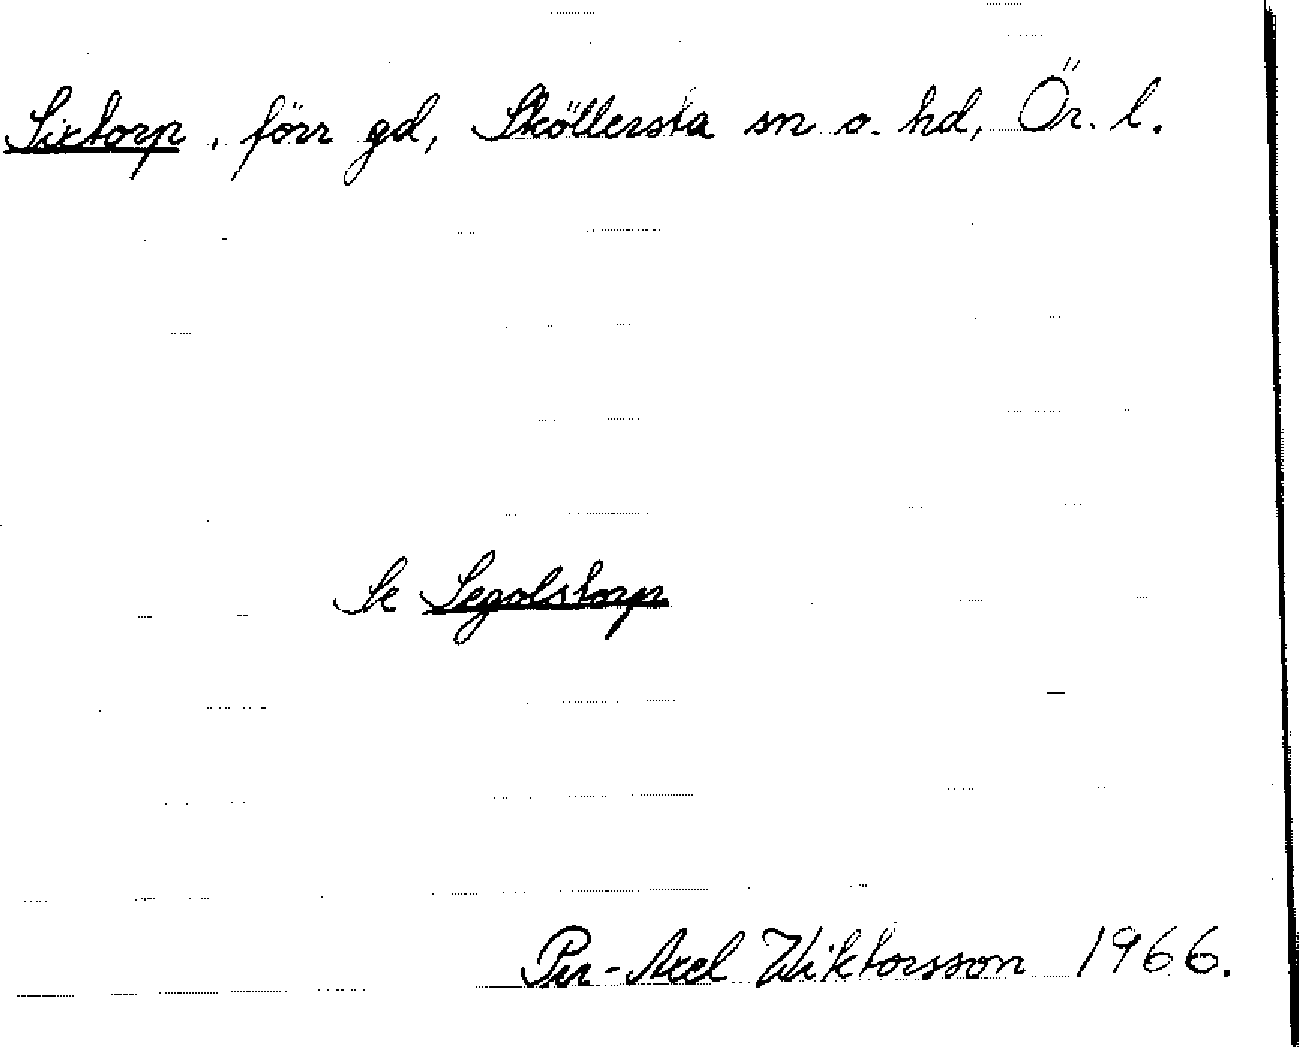 Sixtorp, förr gd, Sköllersta sn o. hd, Ör. l.
Se Segolstorp
Per-Axel Wiktorsson 1966.